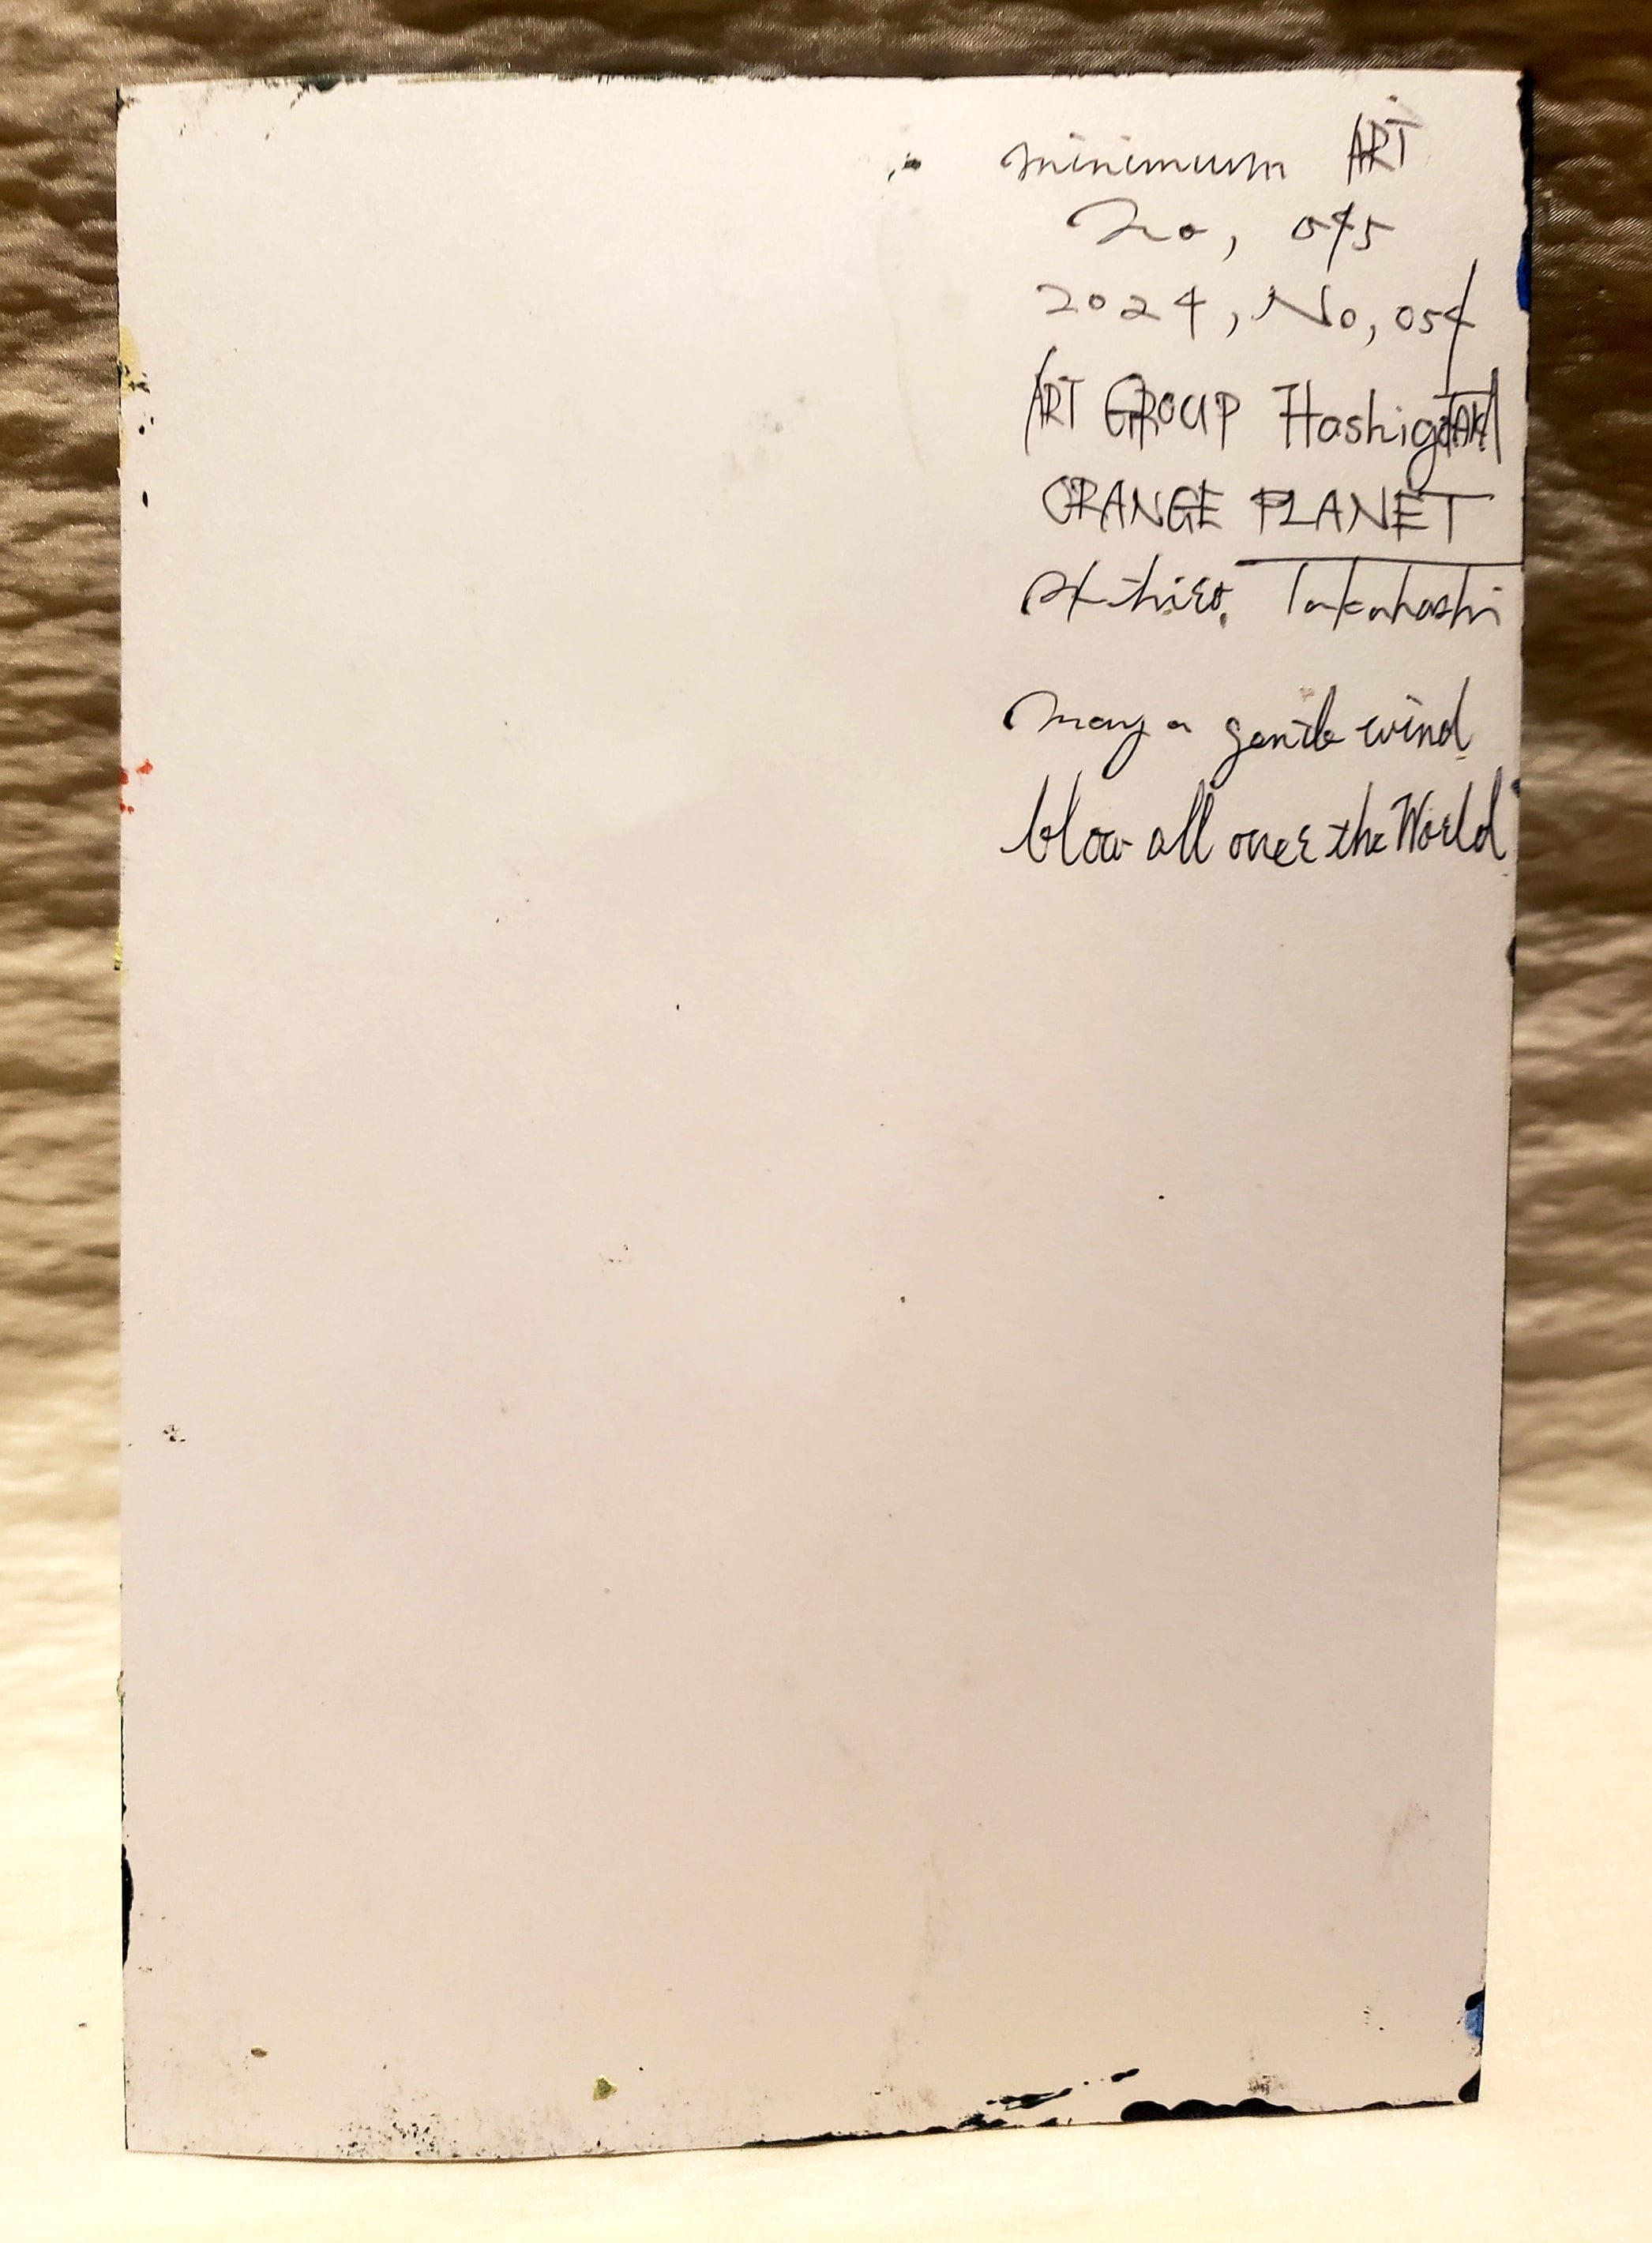 minimum ART
No, 045
2024, No, 054
ART GROUP HashigoTAKA
ORANGE PLANET
Akihiro. Takahashi
may a gentle wind
blow all over the World